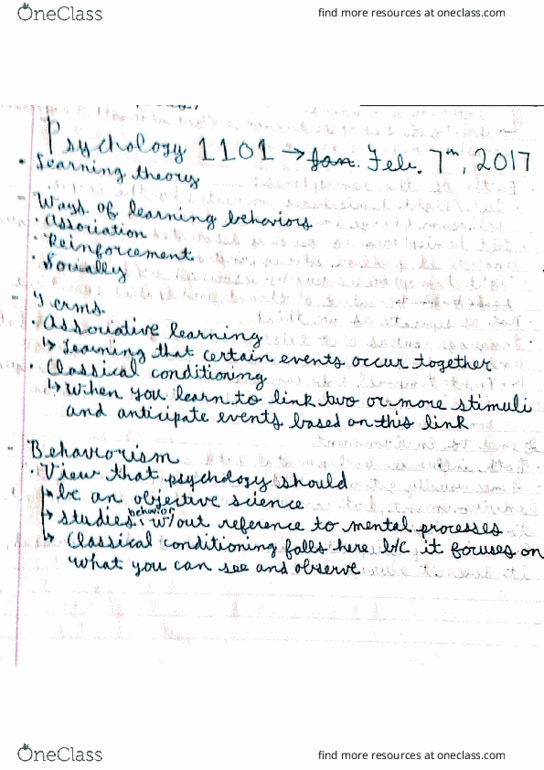 OneClass
find more resources at oneclass.com
Psychology 1101 → Jan. Feb. 7th, 2017
• Learning theory
- Ways of learning behaviors
• Association
• Reinforcement
• Socially
- Terms
• Associative learning
↳ Learning that certain events occur together
• Classical conditioning
↳ When you learn to link two or more stimuli
and anticipate events based on this link
- Behaviorism
• View that psychology should
↳ be an objective science
↳ studies behavior w/out reference to mental processes
↳ Classical conditioning falls here b/c it focuses on
what you can see and observe
OneClass
find more resources at oneclass.com